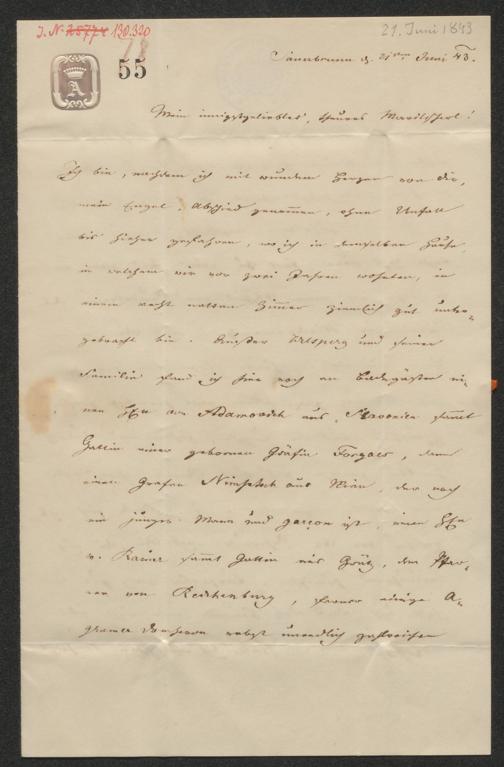 J. N. 25774 130.320
21. Juni 1843
55
A
Sauerbrunn d. 21ten Juni 43.
Mein innigstgeliebtes, theures Marilscherl!
Ich bin, nachdem ich mit wundem Herzen von dir,
mein Engel, Abschied genommen, ohne Unfall
bis hieher gefahren, wo ich in demselben Hause,
in welchem wir vor zwei Jahren wohnten, in
einem recht netten Zimmer ziemlich gut unter-
gebracht bin. Außer und seiner
Familie fand ich hier noch an Badegästen ei-
nen Hrn von Adamovich aus Slavonien sammt
Gattin einer gebornen Gräfin Forgacs, dann
einen Grafen Nimptsch aus Wien, der noch
ein junger Mann und garçon ist, einen Hrn
v. Kaiser sammt Gattin aus Grätz, den Pfar-
rer von Reichenburg, ferner einige A-
gramer Domherrn nebst unendlich zahlreichen